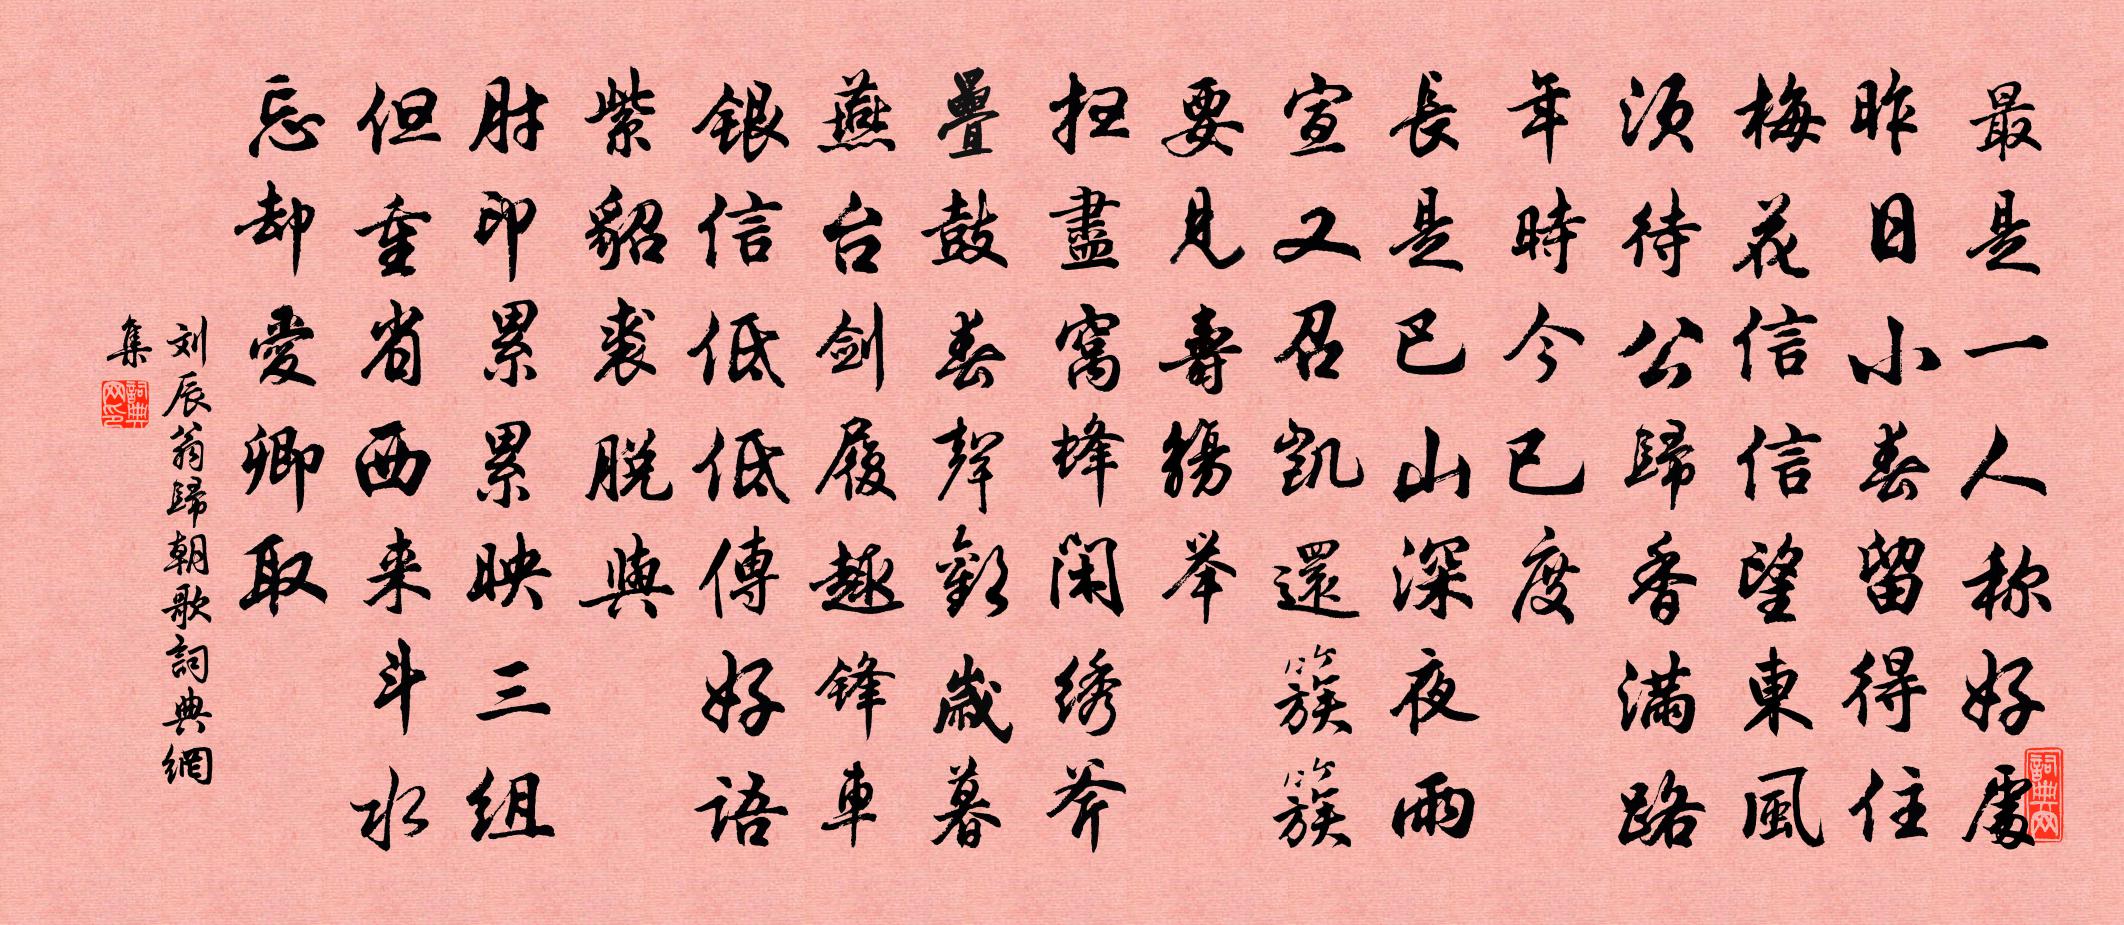 最是一人称好處
昨日小春留得住
梅花信信望東風
須待公歸香滿路
年時今已度
長是巴山深夜雨
宣又召凱還簇簇
要見壽觴举
扫盡窩蜂闲绣斧
疊鼓春聲歡歲暮
燕台剑履趣锋車
銀信低低傳好语
紫貂裘脱與
肘印累累映三组
但重省西来斗水
忘却愛卿取
刘辰翁歸朝歌詞典網
集
詞典网
詞典网印